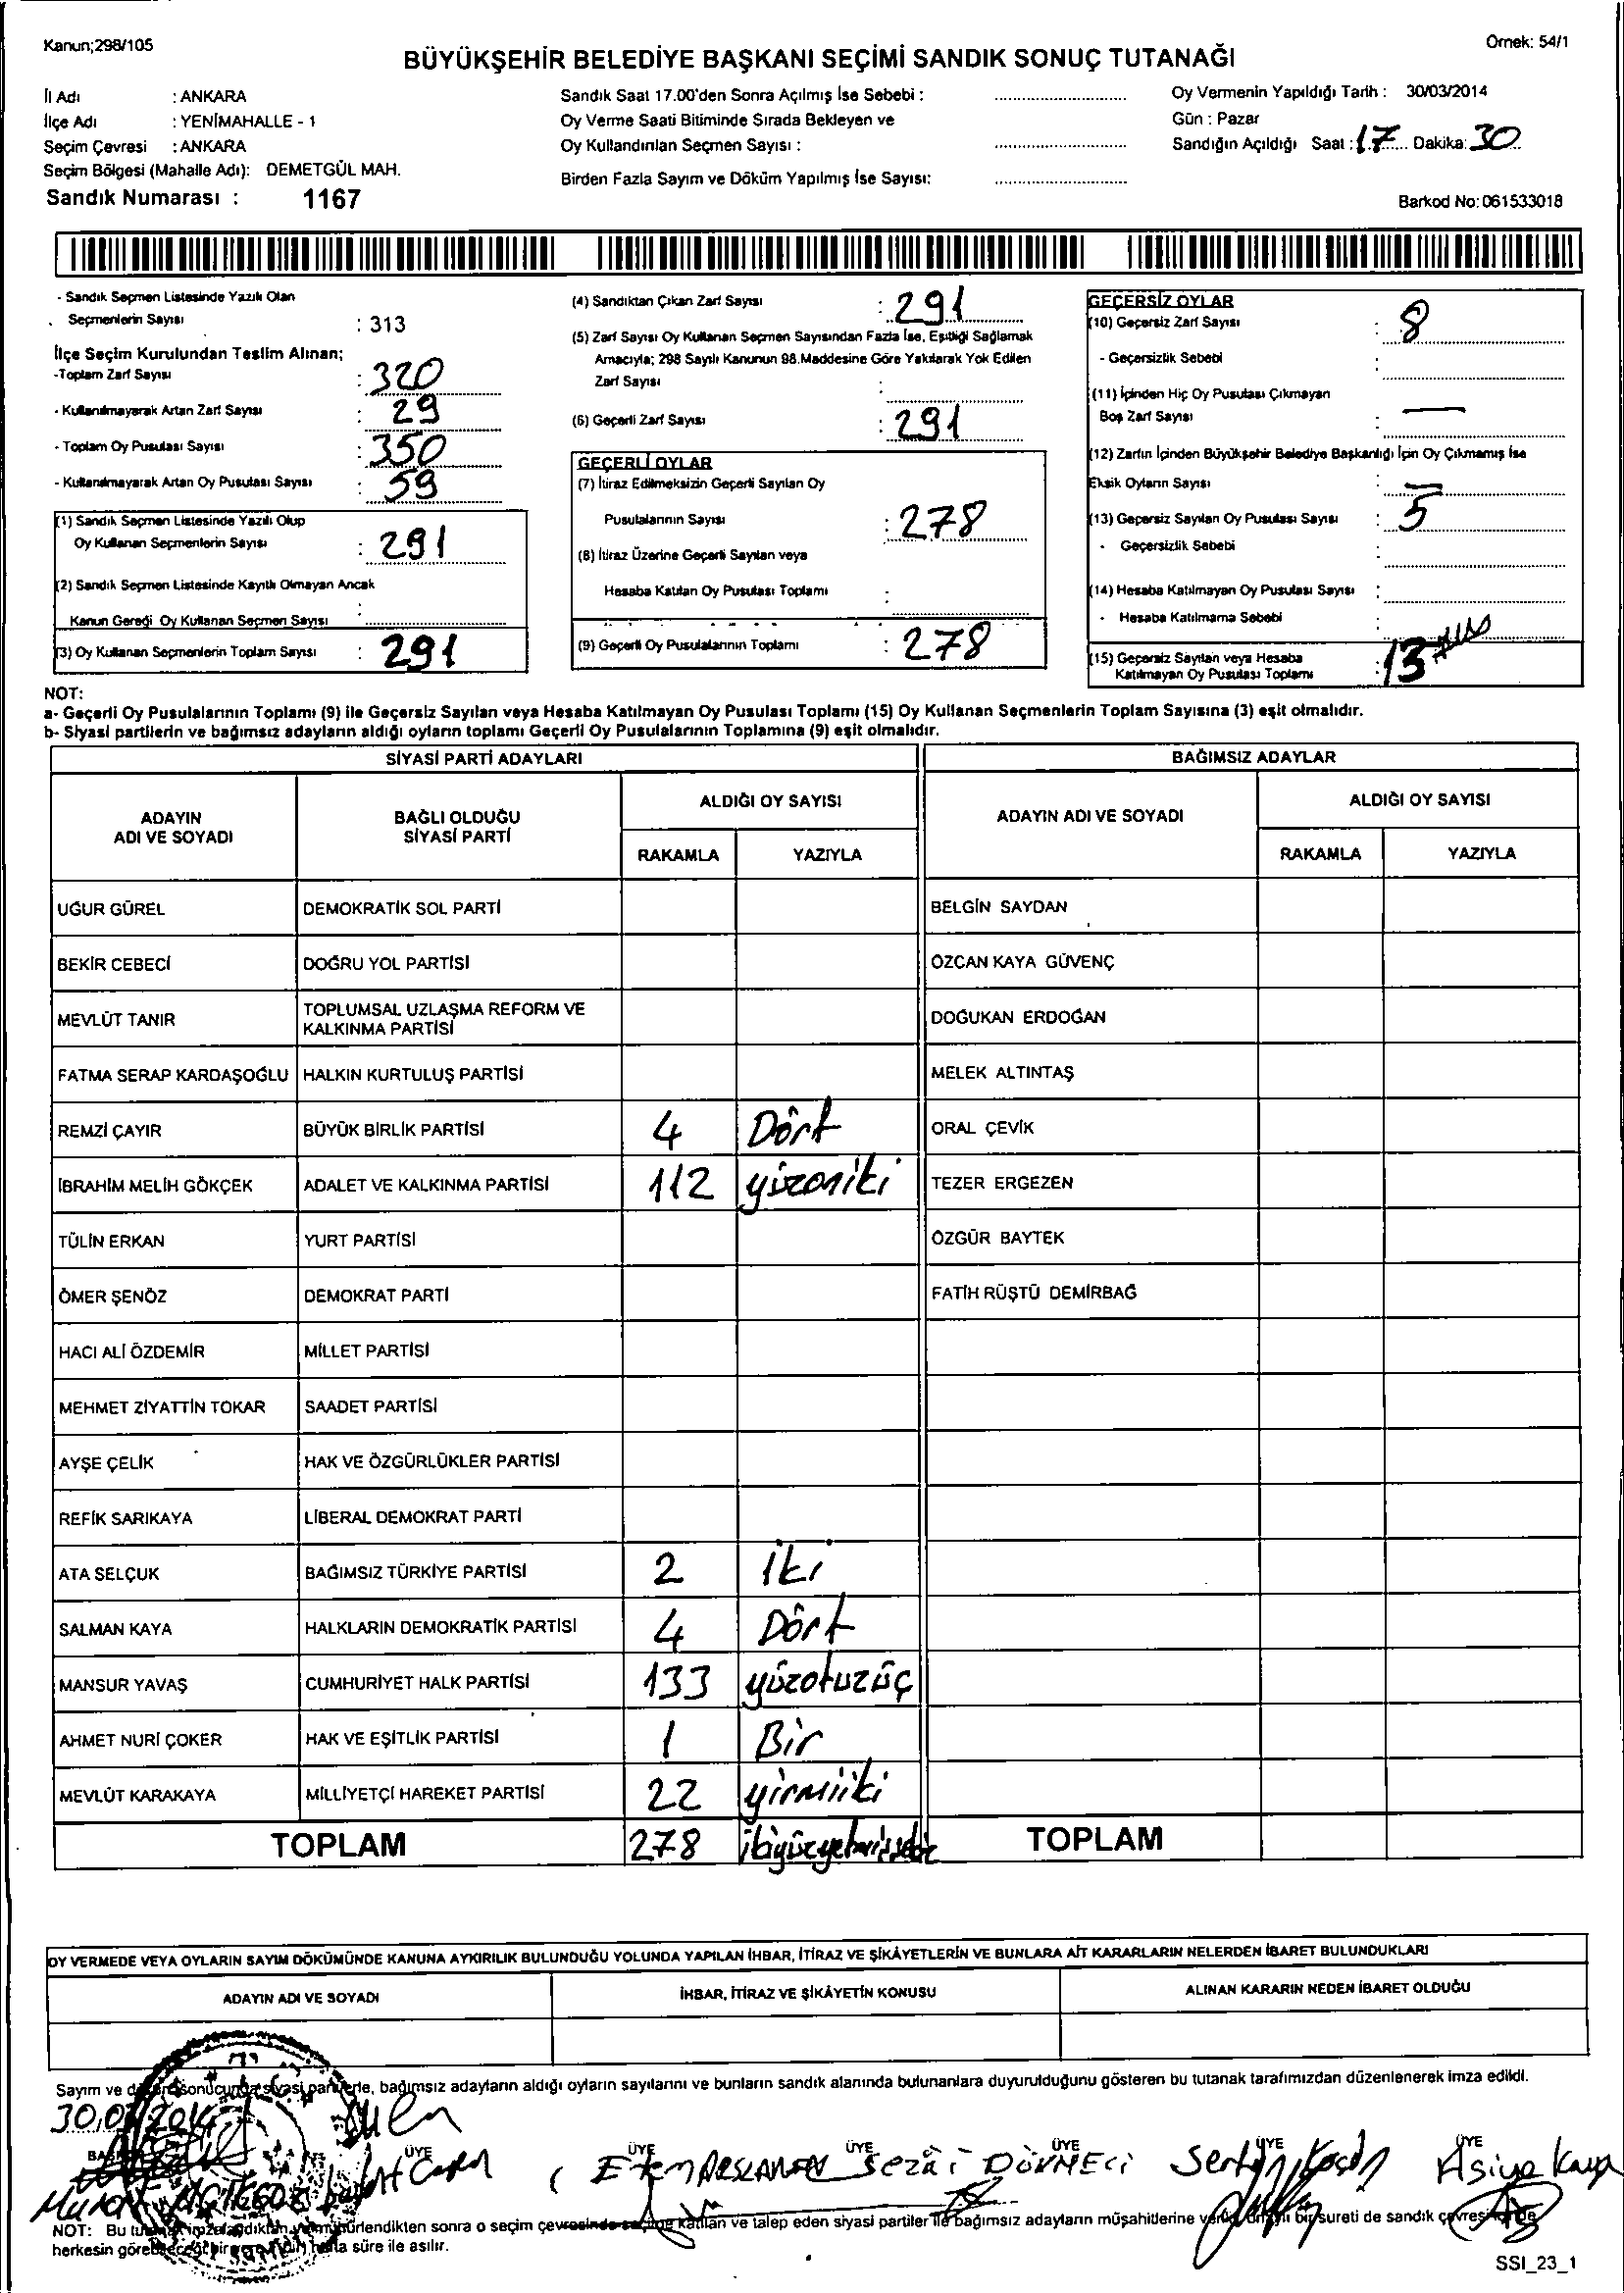 Kanun;298/105
Örnek: 54/1
BÜYÜKŞEHİR BELEDİYE BAŞKANI SEÇİMİ SANDIK SONUÇ TUTANAĞI
İl Adı : ANKARA
İlçe Adı : YENİMAHALLE - 1
Seçim Çevresi : ANKARA
Seçim Bölgesi (Mahalle Adı): DEMETGÜL MAH.
Sandık Numarası : 1167
Sandık Saat 17.00'den Sonra Açılmış İse Sebebi :
Oy Verme Saati Bitiminde Sırada Bekleyen ve
Oy Kullandırılan Seçmen Sayısı :
Birden Fazla Sayım ve Döküm Yapılmış İse Sayısı:
Oy Vermenin Yapıldığı Tarih : 30/03/2014
Gün : Pazar
Sandığın Açıldığı Saat : 17 Dakika: 30
Barkod No: 061533018
- Sandık Seçmen Listesinde Yazılı Olan
Seçmenlerin Sayısı : 313
İlçe Seçim Kurulundan Teslim Alınan;
-Toplam Zarf Sayısı : 320
- Kullanılmayarak Artan Zarf Sayısı : 29
- Toplam Oy Pusulası Sayısı : 350
- Kullanılmayarak Artan Oy Pusulası Sayısı : 59
(1) Sandık Seçmen Listesinde Yazılı Olup
Oy Kullanan Seçmenlerin Sayısı : 291
(2) Sandık Seçmen Listesinde Kayıtlı Olmayan Ancak
Kanun Gereği Oy Kullanan Seçmen Sayısı :
(3) Oy Kullanan Seçmenlerin Toplam Sayısı : 291
(4) Sandıktan Çıkan Zarf Sayısı : 291
(5) Zarf Sayısı Oy Kullanan Seçmen Sayısından Fazla İse, Eşitliği Sağlamak
Amacıyla; 298 Sayılı Kanunun 98.Maddesine Göre Yakılarak Yok Edilen
Zarf Sayısı :
(6) Geçerli Zarf Sayısı : 291
GEÇERLİ OYLAR
(7) İtiraz Edilmeksizin Geçerli Sayılan Oy
Pusulalarının Sayısı : 278
(8) İtiraz Üzerine Geçerli Sayılan veya
Hesaba Katılan Oy Pusulası Toplamı :
(9) Geçerli Oy Pusulalarının Toplamı : 278
GEÇERSİZ OYLAR
(10) Geçersiz Zarf Sayısı : 8
- Geçersizlik Sebebi :
(11) İçinden Hiç Oy Pusulası Çıkmayan
Boş Zarf Sayısı : —
(12) Zarfın İçinden Büyükşehir Belediye Başkanlığı İçin Oy Çıkmamış İse
Eksik Oyların Sayısı : —
(13) Geçersiz Sayılan Oy Pusulası Sayısı : 5
- Geçersizlik Sebebi :
(14) Hesaba Katılmayan Oy Pusulası Sayısı :
- Hesaba Katılmama Sebebi :
(15) Geçersiz Sayılan veya Hesaba
Katılmayan Oy Pusulası Toplamı : 13
NOT:
a- Geçerli Oy Pusulalarının Toplamı (9) ile Geçersiz Sayılan veya Hesaba Katılmayan Oy Pusulası Toplamı (15) Oy Kullanan Seçmenlerin Toplam Sayısına (3) eşit olmalıdır.
b- Siyasi partilerin ve bağımsız adayların aldığı oyların toplamı Geçerli Oy Pusulalarının Toplamına (9) eşit olmalıdır.
SİYASİ PARTİ ADAYLARI
BAĞIMSIZ ADAYLAR
ADAYIN
ADI VE SOYADI
BAĞLI OLDUĞU
SİYASİ PARTİ
ALDIĞI OY SAYISI
RAKAMLA YAZIYLA
ADAYIN ADI VE SOYADI
ALDIĞI OY SAYISI
RAKAMLA YAZIYLA
UĞUR GÜREL DEMOKRATİK SOL PARTİ BELGİN SAYDAN
BEKİR CEBECİ DOĞRU YOL PARTİSİ ÖZCAN KAYA GÜVENÇ
MEVLÜT TANIR TOPLUMSAL UZLAŞMA REFORM VE
KALKINMA PARTİSİ DOĞUKAN ERDOĞAN
FATMA SERAP KARDAŞOĞLU HALKIN KURTULUŞ PARTİSİ MELEK ALTINTAŞ
REMZİ ÇAYIR BÜYÜK BİRLİK PARTİSİ 4 Dört ORAL ÇEVİK
İBRAHİM MELİH GÖKÇEK ADALET VE KALKINMA PARTİSİ 112 yüzoniki TEZER ERGEZEN
TÜLİN ERKAN YURT PARTİSİ ÖZGÜR BAYTEK
ÖMER ŞENÖZ DEMOKRAT PARTİ FATİH RÜŞTÜ DEMİRBAĞ
HACI ALİ ÖZDEMİR MİLLET PARTİSİ
MEHMET ZİYATTİN TOKAR SAADET PARTİSİ
AYŞE ÇELİK HAK VE ÖZGÜRLÜKLER PARTİSİ
REFİK SARIKAYA LİBERAL DEMOKRAT PARTİ
ATA SELÇUK BAĞIMSIZ TÜRKİYE PARTİSİ 2 iki
SALMAN KAYA HALKLARIN DEMOKRATİK PARTİSİ 4 Dört
MANSUR YAVAŞ CUMHURİYET HALK PARTİSİ 133 yüzotuzüç
AHMET NURİ ÇOKER HAK VE EŞİTLİK PARTİSİ 1 Bir
MEVLÜT KARAKAYA MİLLİYETÇİ HAREKET PARTİSİ 22 yirmiiki
TOPLAM 278 TOPLAM
OY VERMEDE VEYA OYLARIN SAYIM DÖKÜMÜNDE KANUNA AYKIRILIK BULUNDUĞU YOLUNDA YAPILAN İHBAR, İTİRAZ VE ŞİKÂYETLERİN VE BUNLARA AİT KARARLARIN NELERDEN İBARET BULUNDUKLARI
ADAYIN ADI VE SOYADI İHBAR, İTİRAZ VE ŞİKÂYETİN KONUSU ALINAN KARARIN NEDEN İBARET OLDUĞU
Sayım ve sonucunda siyasi partilerle, bağımsız adayların aldığı oyların sayılarını ve bunların sandık alanında bulunanlara duyurulduğunu gösteren bu tutanak tarafımızdan düzenlenerek imza edildi.
ÜYE ÜYE ÜYE ÜYE ÜYE ÜYE
Sezai DÖVMECİ Asiye Kaya
NOT: Bu sonra o seçim çevresinde katılan ve talep eden siyasi partiler ile bağımsız adayların müşahitlerine bir sureti de sandık
herkesin süre ile asılır.
SSI_23_1